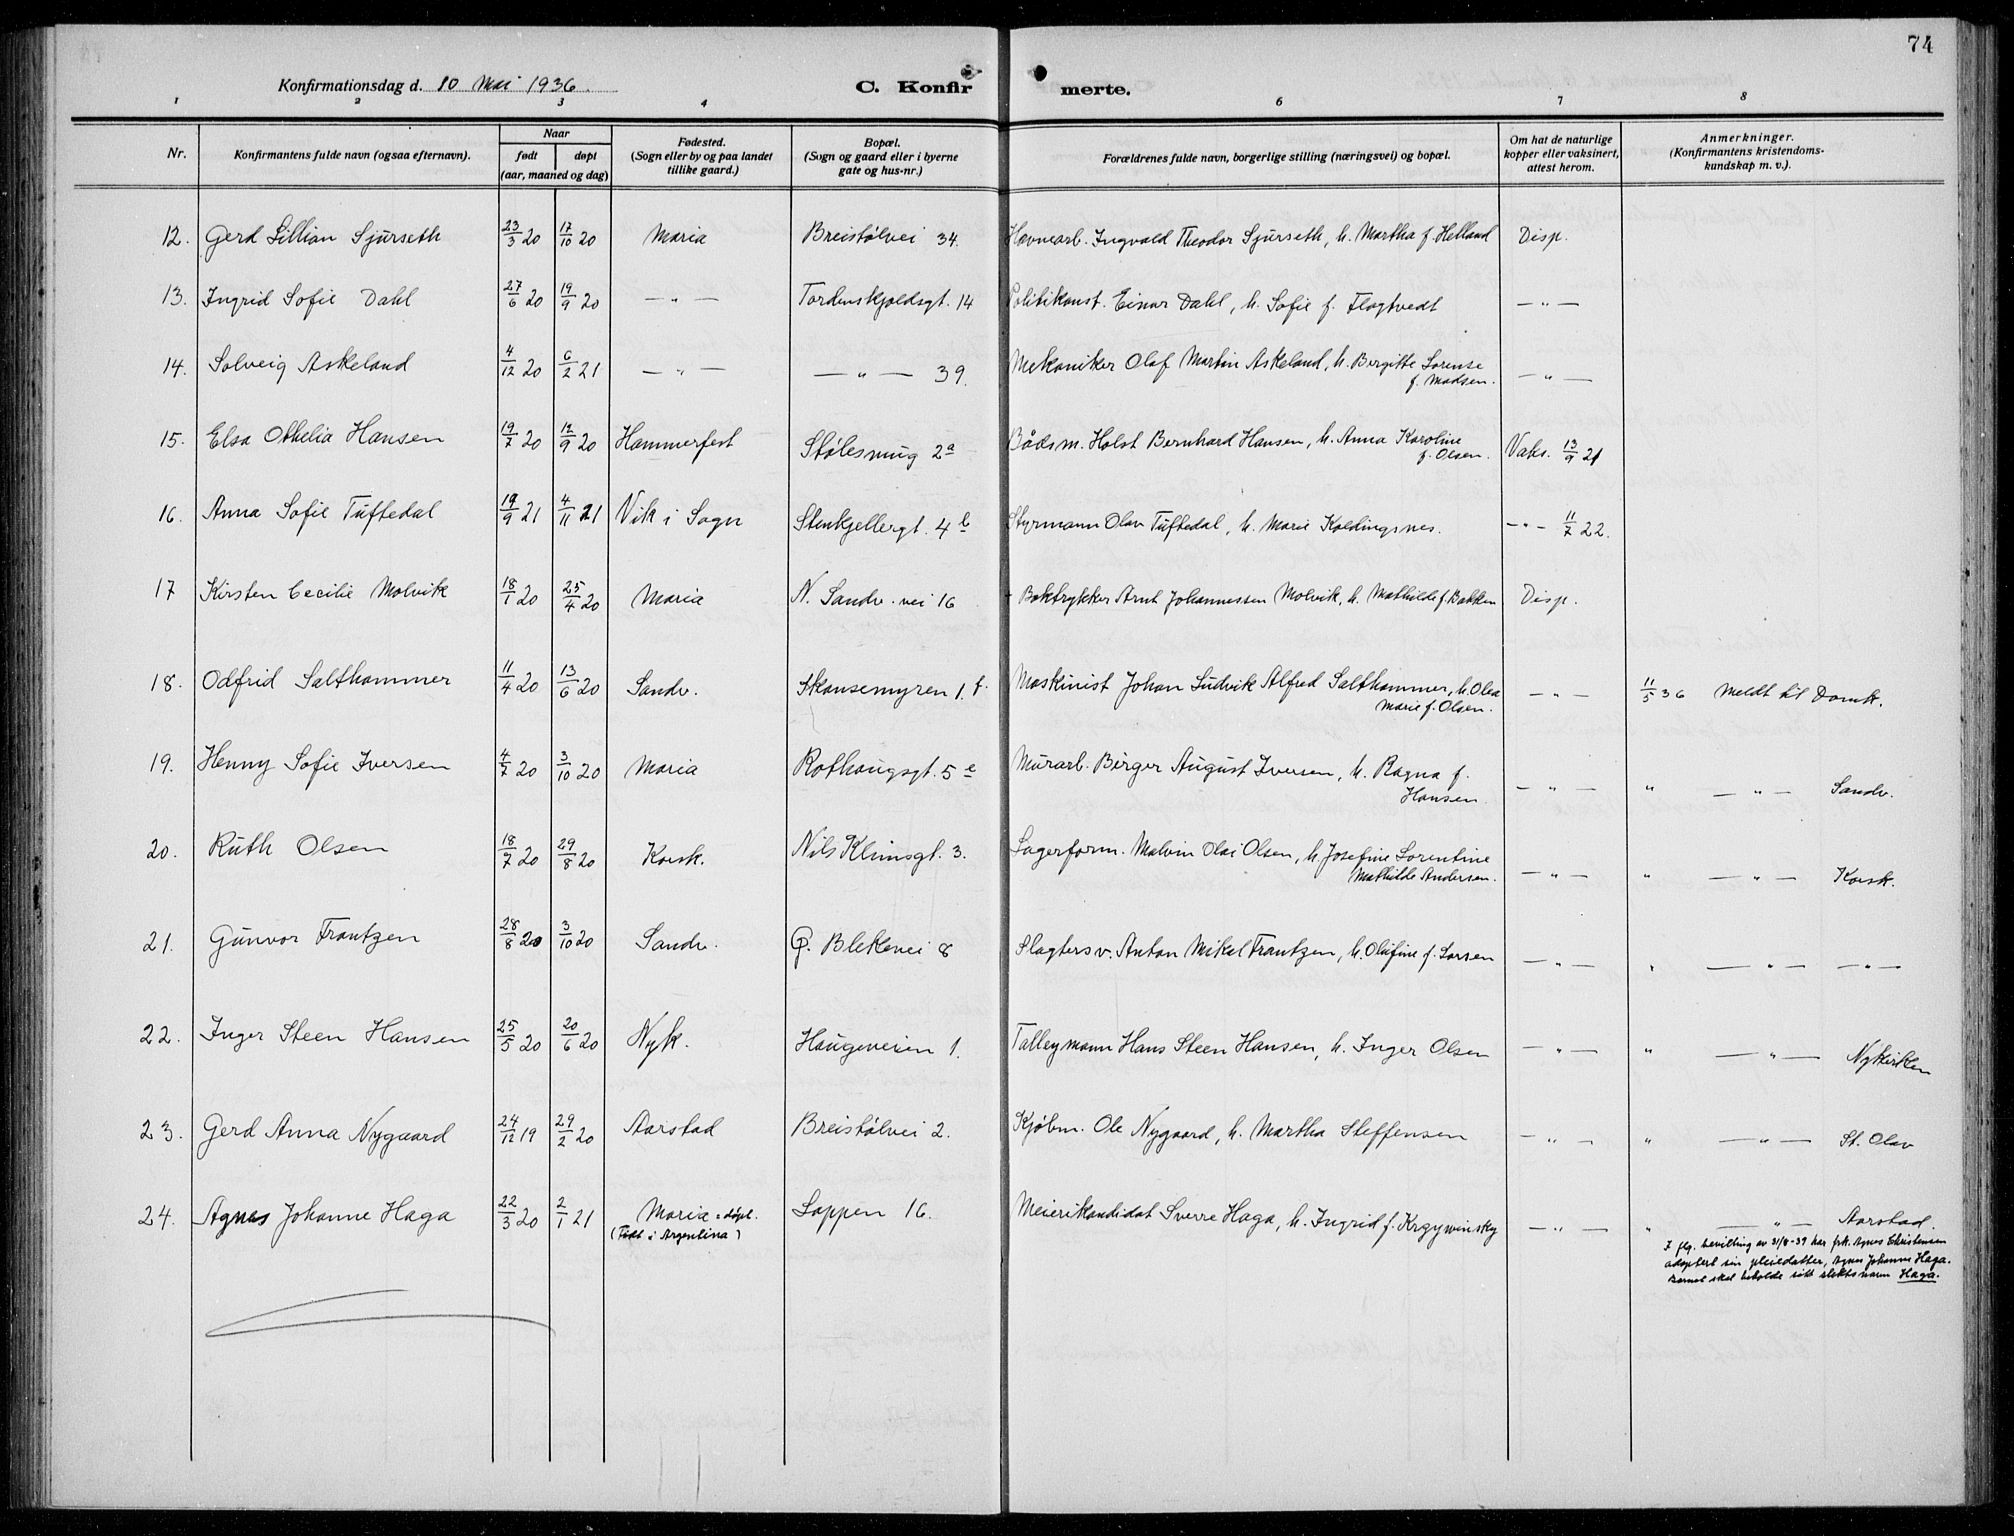 74
Konfirmationsdag d. 10 Mai 1936. C. Konfirmerte.
1 2 3 4 6 7 8
Nr. Konfirmantens fulde navn (ogsaa efternavn). Naar født døpt (aar, maaned og dag) Fødested. (Sogn eller by og paa landet tillike gaard.) Bopæl. (Sogn og gaard eller i byerne gate og hus-nr.) Forældrenes fulde navn, borgerlige stilling (næringsvei) og bopæl. Om hat de naturlige kopper eller vaksinert, attest herom. Anmerkninger. (Konfirmantens kristendoms-kundskap m. v.).
12. Gerd Lillian Sjurseth 23/3 20 17/10 20 Maria Breistølvei 34. Havnearb. Ingvald Theodor Sjurseth, h. Martha f. Helland Disp.
13. Ingrid Sofie Dahl 27/6 20 19/9 20 — " — Tordenskjoldsgt. 14 Politikonst. Einar Dahl, h. Sofie f. Flagtvedt — " —
14. Solveig Askeland 4/12 20 6/2 21 — " — — " — 39. Mekaniker Olaf Martin Askeland, h. Bergitte Lorense
f. Madsen. — " —
15. Elsa Othelia Hansen 19/7 20 12/9 20 Hammerfest Stølesmug 2a Bådsm. Holst Bernhard Hansen, h. Anna Karoline
f. Olsen. Vaks. 13/9 21
16. Anna Sofie Tuftedal 19/9 21 4/11 21 Vik i Sogn Stenkjellergt. 4b Styrmann Olav Tuftedal, h. Marie Koldingsnes. — " — 11/7 22.
17 Kirsten Cecilie Molvik 18/1 20 25/4 20 Maria N. Sandv. vei 16 Boktrykker Arnt Johannessen Molvik, h. Mathilde f. Bakken Disp.
18. Odfrid Salthammer 11/4 20 13/6 20 Sandv. Skansemyren 1. f. Maskinist Johan Ludvik Alfred Salthammer, h. Olea
Marie f. Olsen. — " — 11/5 36 Meldt til Domk.
19. Henny Sofie Iversen 4/7 20 3/10 20 Maria Rothaugsgt. 5e Murarb. Birger August Iversen, h. Ragna f.
Hansen. — " — " — " — Sandv.
20. Ruth Olsen 18/7 20 29/8 20 Korsk. Nils Klimsgt. 3. Lagerform. Malvin Olai Olsen, h. Josefine Lorentine
Mathilde Andersen. — " — " — " — Korsk.
21. Gunvor Frantzen 28/8 20 3/10 20 Sandv. G. Blekevei 8 Slagtersv. Anton Mikal Frantzen, h. Olufine f. Larsen — " — " — " — — " —
22. Inger Steen Hansen 25/5 20 20/6 20 Nyk. Haugeveien 1. Talleymann Hans Steen Hansen, h. Inger Olsen — " — " — " — Nykirken
23. Gerd Anna Nygaard 24/12 19 29/2 20 Aarstad Breistølvei 2. Kjøbm. Ole Nygaard, h. Martha Steffensen — " — " — " — St. Olav
24. Agnes Johanne Haga 22/3 20 2/1 21 Maria = døpt.
(Født i Argentina) Loppen 16. Meierikandidat Sverre Haga, h. Ingrid f. Krgywinsky — " — " — " — Aarstad.
I flg. bevilling av 31/8-39 har frk. Agnes Christensen
adoptert sin pleiedatter, Agnes Johanne Haga.
Barnet skal beholde sitt slektsnavn Haga.